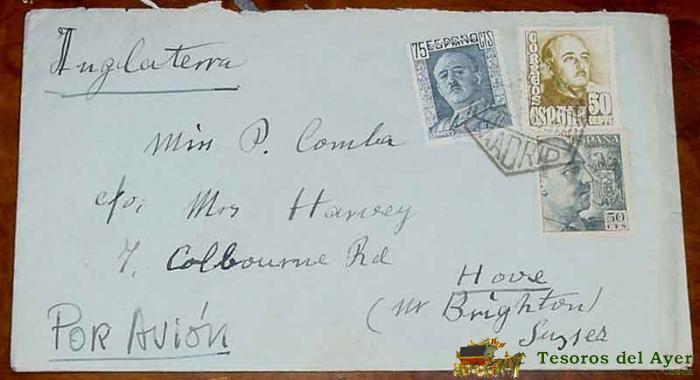 Inglaterra
75 CTS
CORREOS
50 CENTS
ESPAÑA
MADRID
50 CTS
Miss P. Comba
c/o; Mrs Harvey
7, Colbourne Rd
Hove
(nr Brighton)
Sussex
POR AVIÓN
Tesoros del Ayer